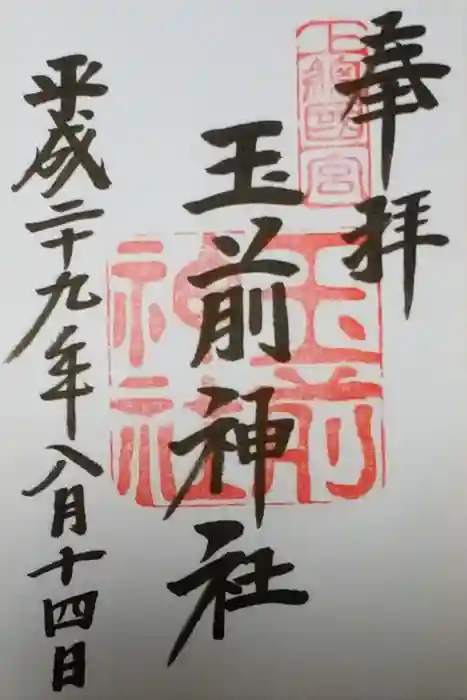 奉拝
上総國一宮
玉前神社
玉前神社
平成二十九年八月十四日